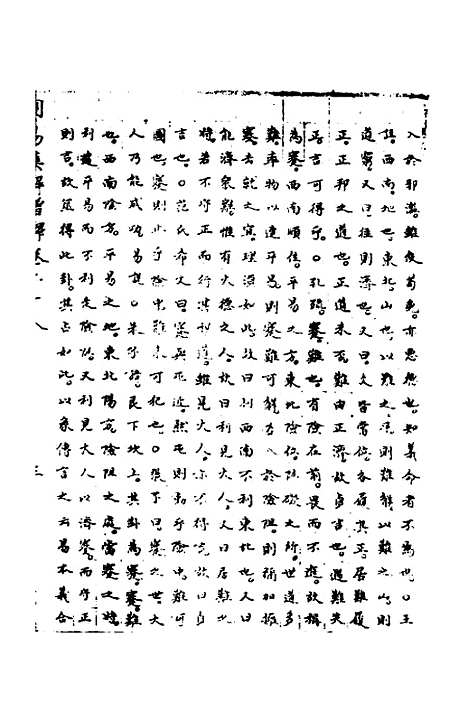 入於邪濫雖後苟免亦惡德也知義命者不為也○王
弼西南地也東北山也以難之平則難解以難之山則
道窮又曰往則濟也又曰爻皆當位各履其正居難履
正正邦之道也正道未否難由正濟故貞吉也遇難失
正吉可得乎○孔疏蹇難也有險在前畏而不進故稱
為蹇西南順位平易之方東北險位阻礙之所世道多
難率物以適平易則蹇難可解若入於險阻則彌加擁
塞去就之宜理須如此故曰利西南不利東北也又曰
能濟眾難惟有大德之人故曰利見大人又曰居難之
時若不守正而行其邪道雖見大人亦不得吉故曰貞
吉也○范氏希文曰蹇與屯近然屯則動乎險中難可
圖也蹇則止乎險中難未可犯也○張子曰蹇之世大
人乃能成功易說○朱子 艮下坎上其卦為蹇蹇難
也西南陰方平易之地東北陽方險阻之處當蹇之時
利處平易而不利走險阻又利見大人以濟蹇而守正
則吉故筮得此卦其占如此以彖傳言之云易本義合
周易集解增釋卷 八 三